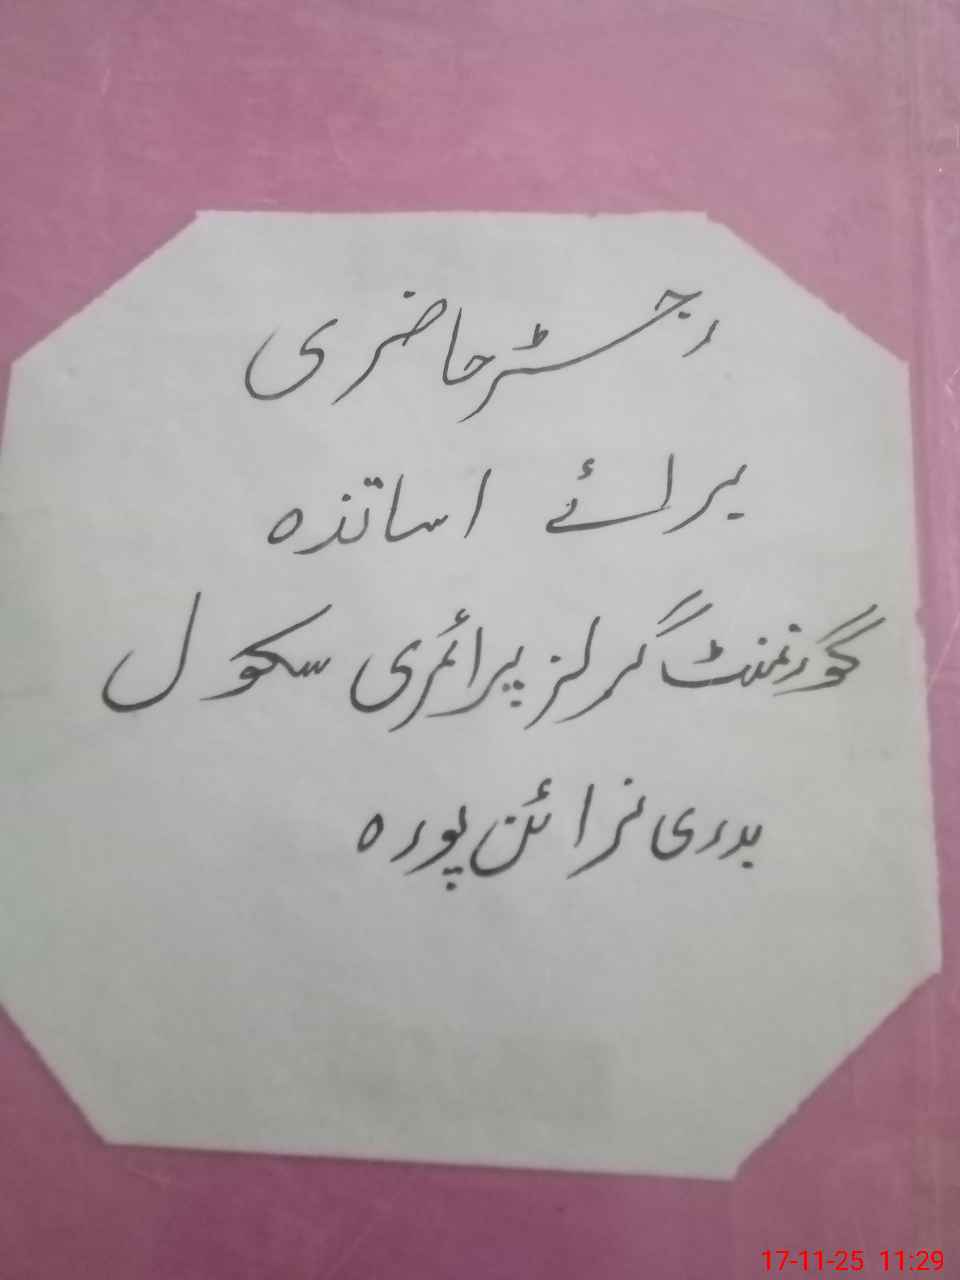 رجسٹر حاضری
برائے اساتذہ
گورنمنٹ گرلز پرائمری سکول
بدری نرائن پورہ
17-11-25 11:29